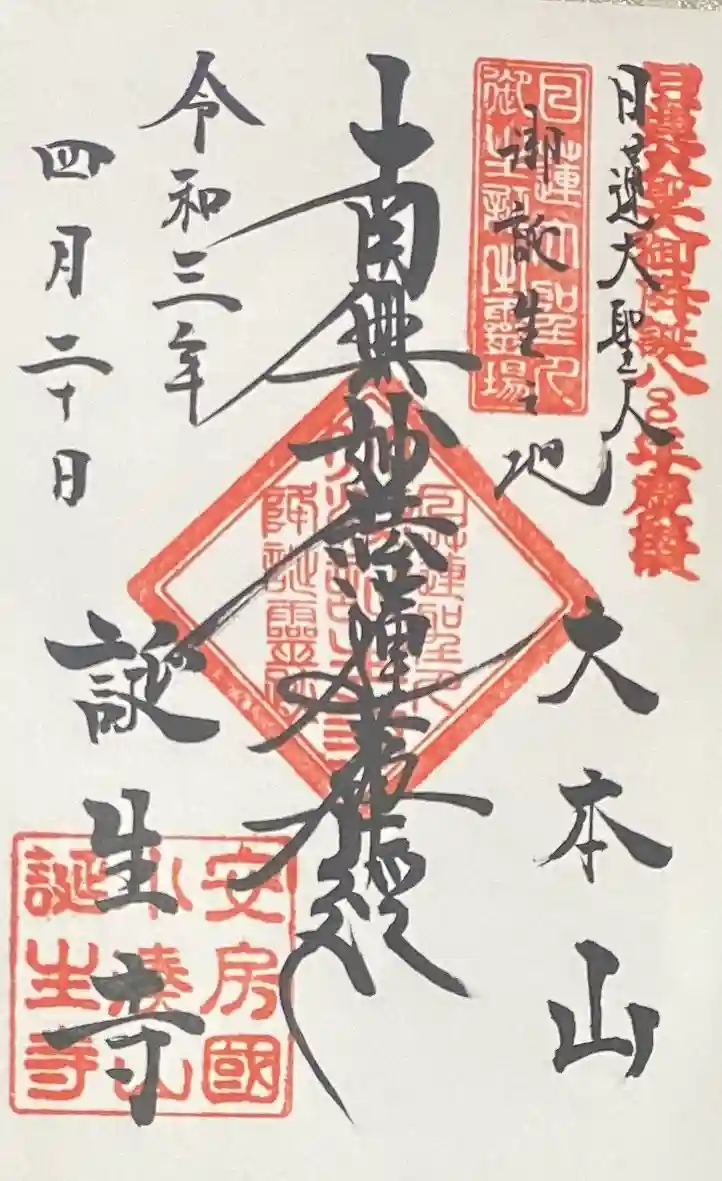 日蓮大聖人御降誕八〇〇年慶讃
日蓮大聖人
御誕生之地
日蓮大聖人
御生誕之靈場
大本山
南無妙法蓮華經
日蓮聖人
降誕靈
令和三年
四月二十日
誕生寺
安房國
小湊山
誕生寺